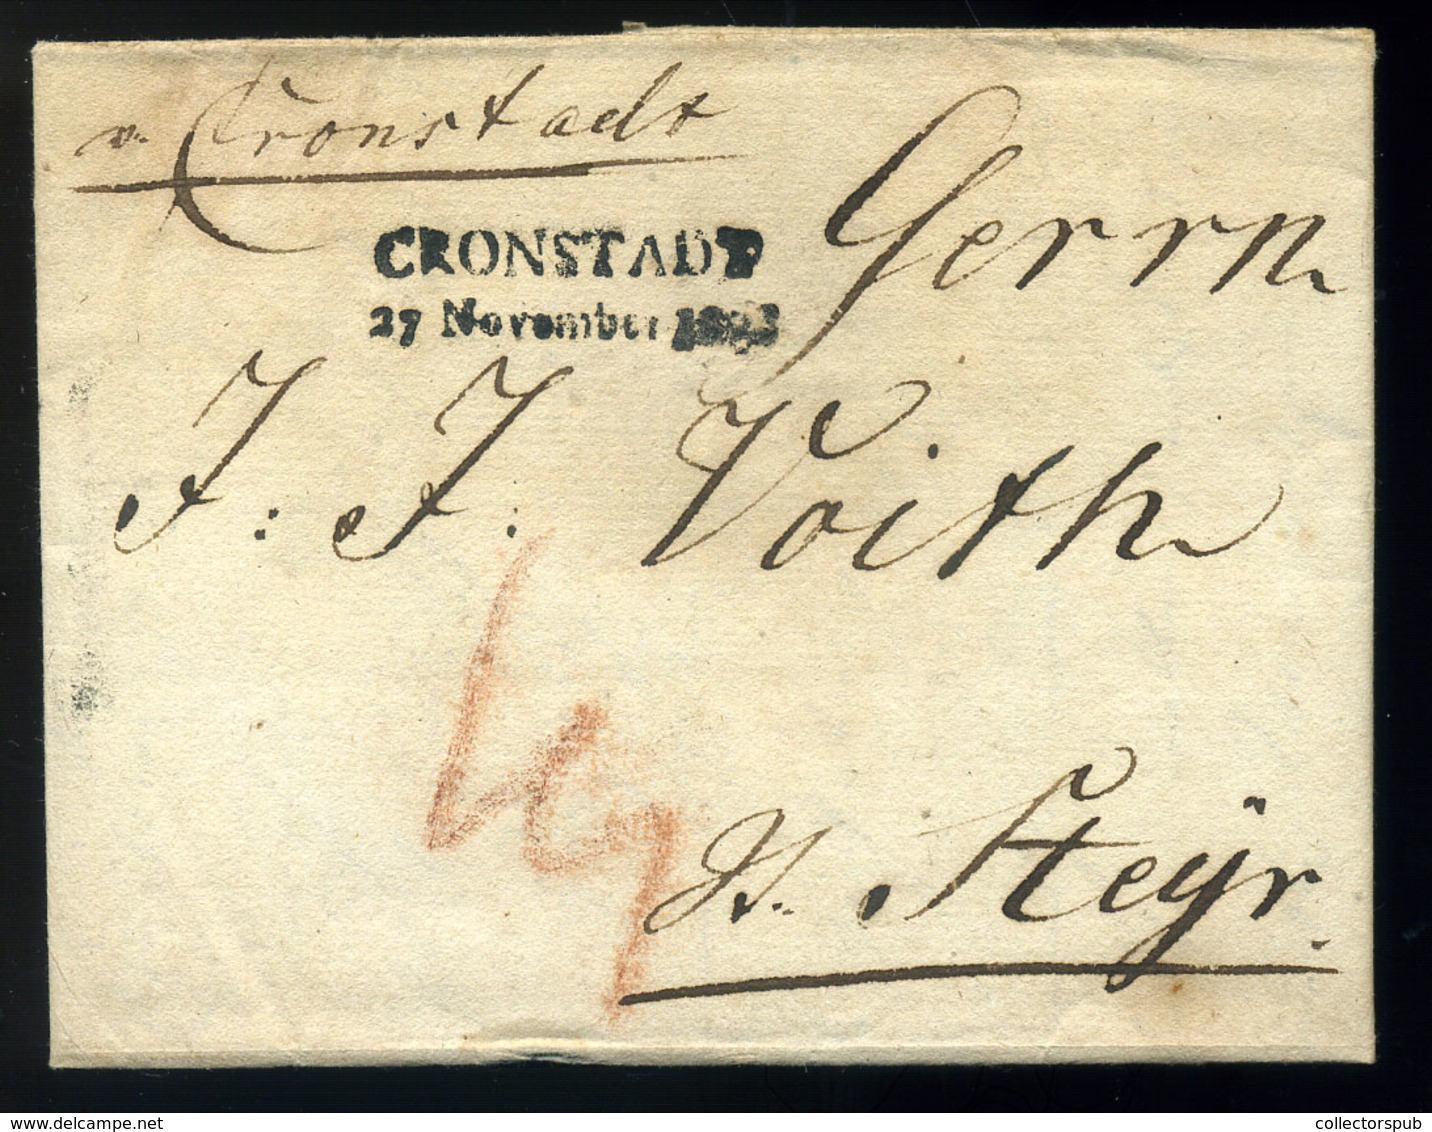 v. Cronstadt
CRONSTADT
27 November
Herrn
J: J: Voith
Steyr.
www.delcampe.net
collectorspub